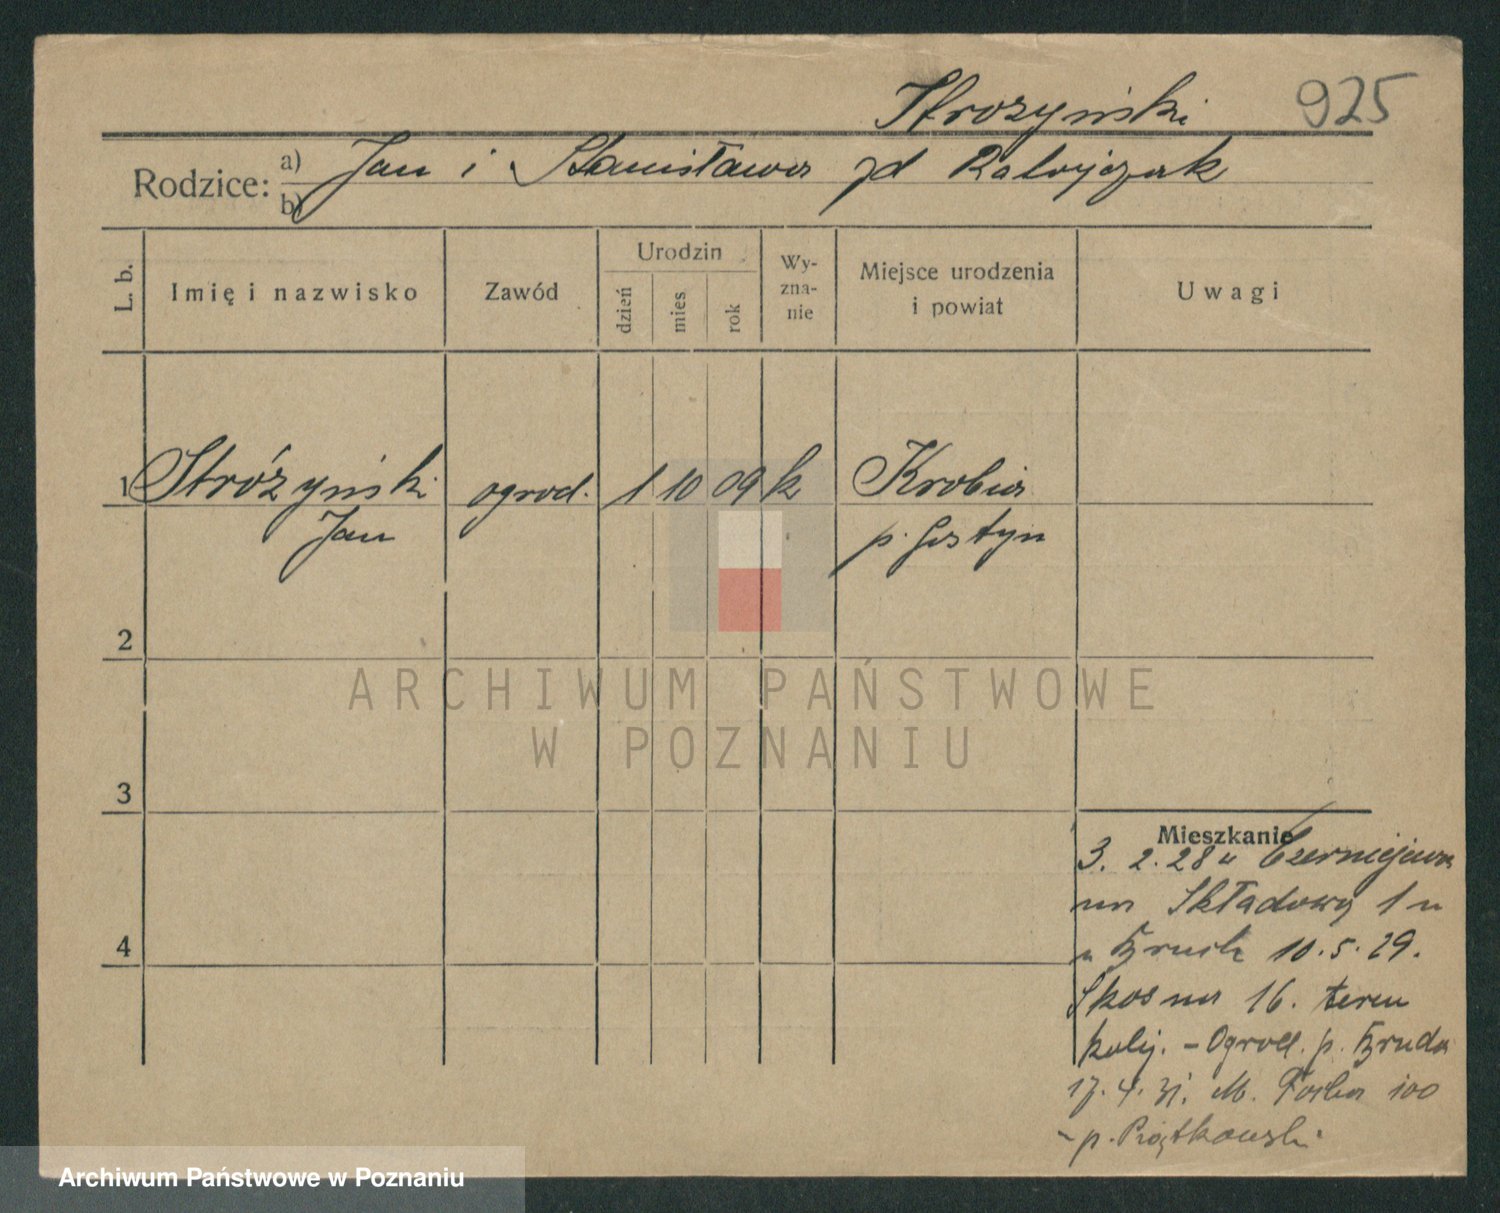 Strozyński 925
Rodzice: a) b) Jan i Stanisława zd Ratajczak
L. b. Imię i nazwisko Zawód Urodzin dzień mies rok Wy-zna-nie Miejsce urodzenia i powiat Uwagi
1 Stróżyński ogrod. 1 10 09 k Krobia
Jan p. Gostyn
2
ARCHIWUM PAŃSTWOWE
W POZNANIU
3
Mieszkanie
3. 2. 28 Czerniejewa
na Składowy 1
10. 5. 29.
16. teren
kolej. – Ogrod. p.
17. 4. 31. M. 100
– p. Piątkowski
4
Archiwum Państwowe w Poznaniu